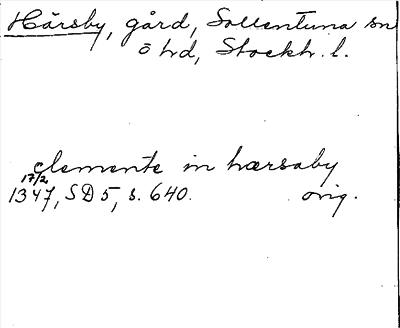 Hårsby, gård, Sollentuna sn
ö hd, Stockh. l.
clemente in hærsaby
17/2
1347, SD 5, s. 640. orig.